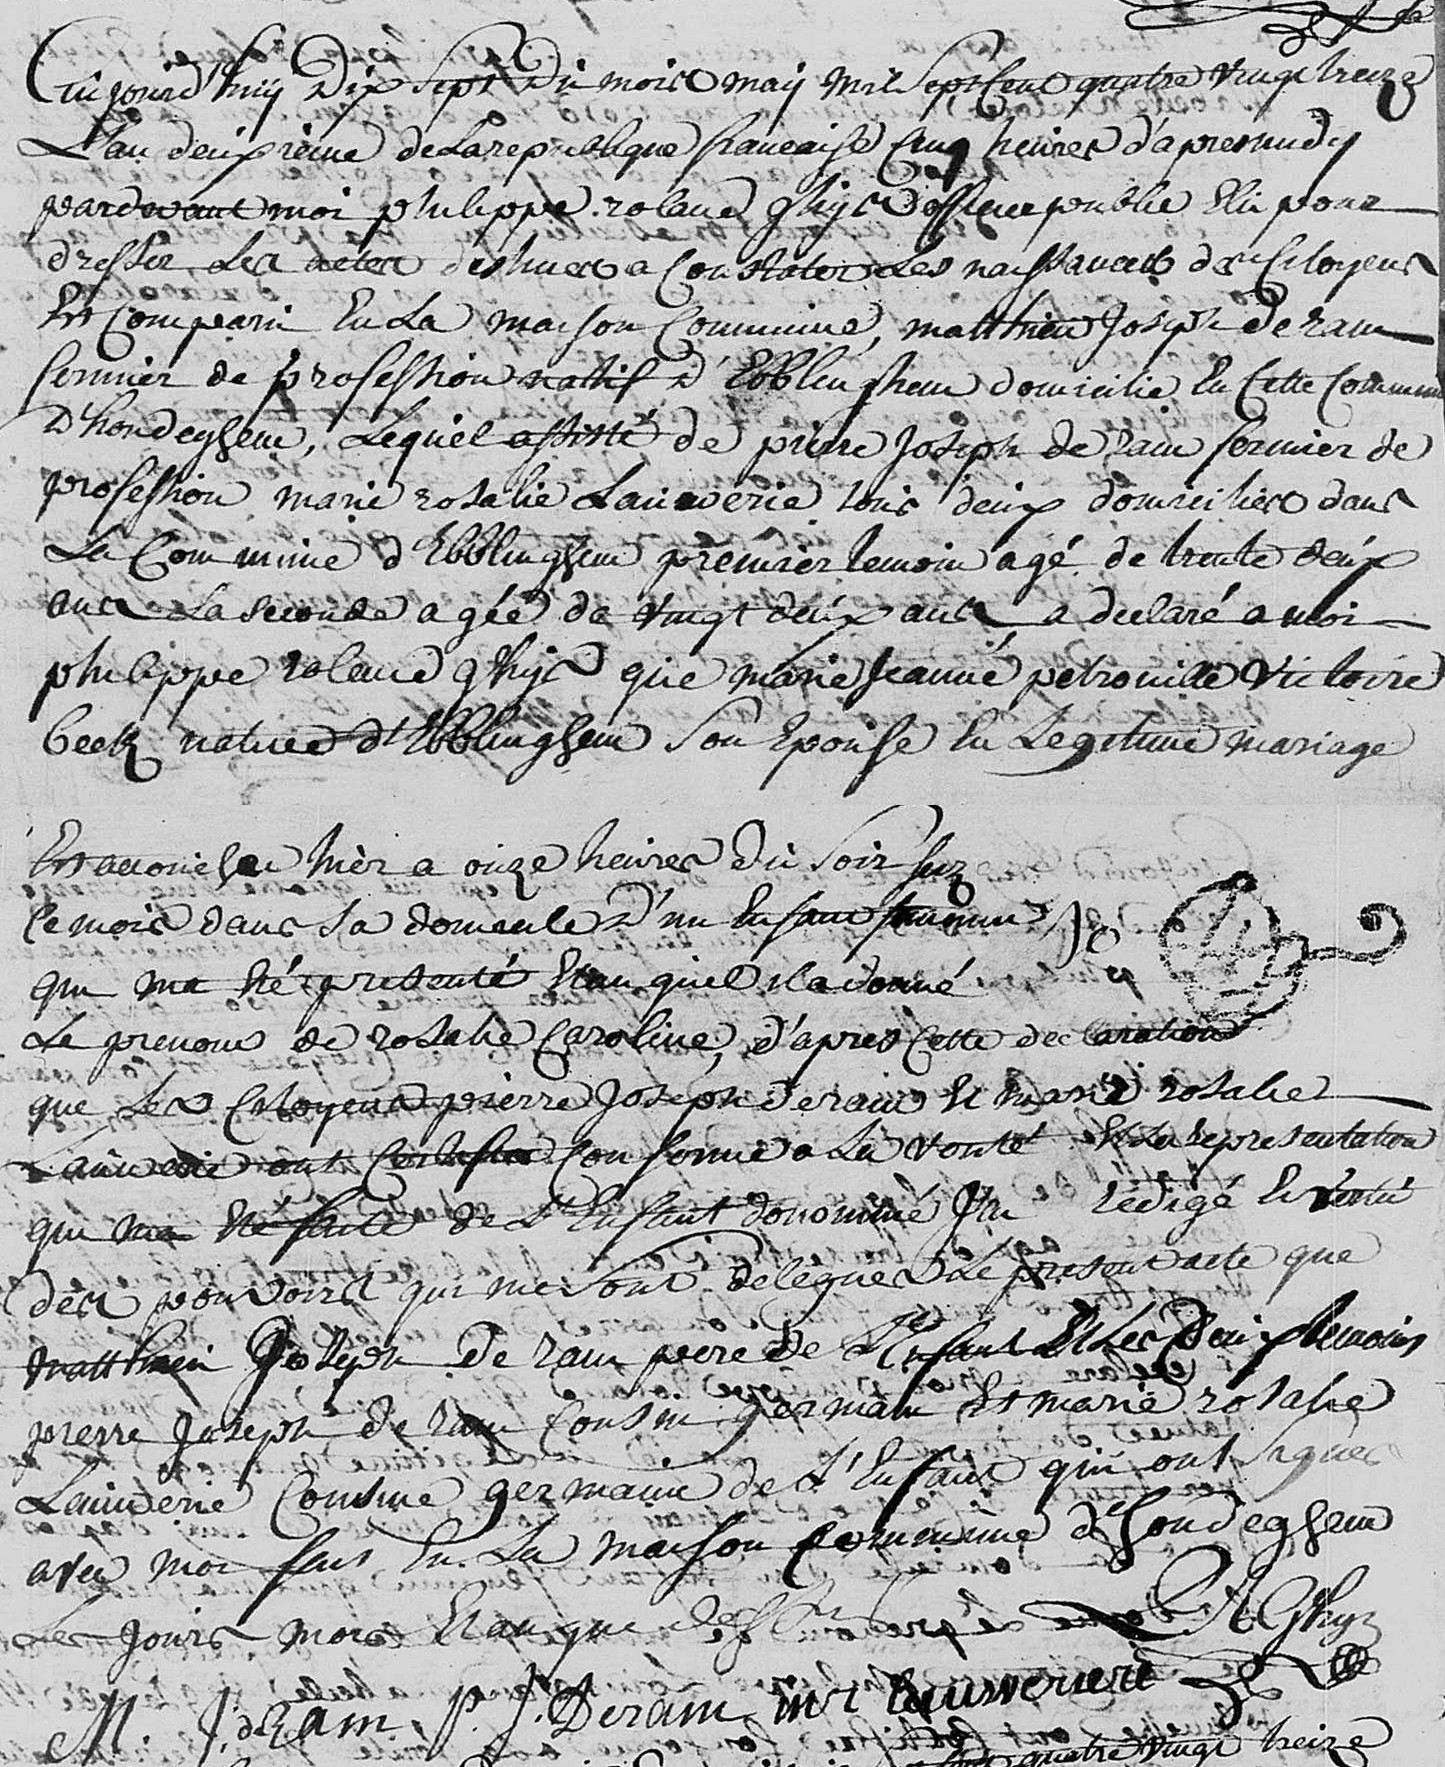 Cujourd'huy Dix sept Du mois may mil sept Cent quatre vingt treize
L'an deuxieme de La republique francaise Cinq heures d'apremidy
pardevant moi philippe roland ghys officie publie Elu pour
dresser Les actes destinees a Constater Les naissances des Citoyens
Est Comparu En La maison Commune, matthieu Joseph De ram
fermier de profession nattif D'Ebblinghem domicilie En Cette Commune
D'hondeghem, Lequel assisté de pierre Joseph de ram fermier de
profession marie rosalie Lauwerie tous deux domicilies dans
La Commune d'Ebblinghem premier temoin agé de trente deux
ans La seconde agéé de vingt deux ans a declaré a moi
philippe roland ghys que marie Jeanne petronille Victoire
beck native d'Ebblinghem son Epouse En Legitime mariage
Est accouchee hier a onze heures Du soir seize
Ce mois dans sa domicile D'un Enfant
qui ma Eté presenté Et au quel il a donné
Le prenom de rosalie Caroline, d'apres Cette declaration
que Les Citoyens pierre Joseph Deram Et marie rosalie
Lauwerie ont Certifie Conforme a La verité Et La representation
qui ma Eté faite de L'Enfant denommé J'ai redigé En vertu
des pouvoirs qui me sont delegues Le present acte que
matthieu Joseph De ram pere de L'Enfant Et Les Deux temoins
pierre Joseph de ram Cousin germain Et marie rosalie
Lauwerie Cousine germaine de L'Enfant qui ont signés
avec moi fait En La maison Commune d'hondeghem
Les Jours mois Et an que dessus R Ghys
M. J. deram P. J. Deram mr Lauwerierè
quatre vingt treize